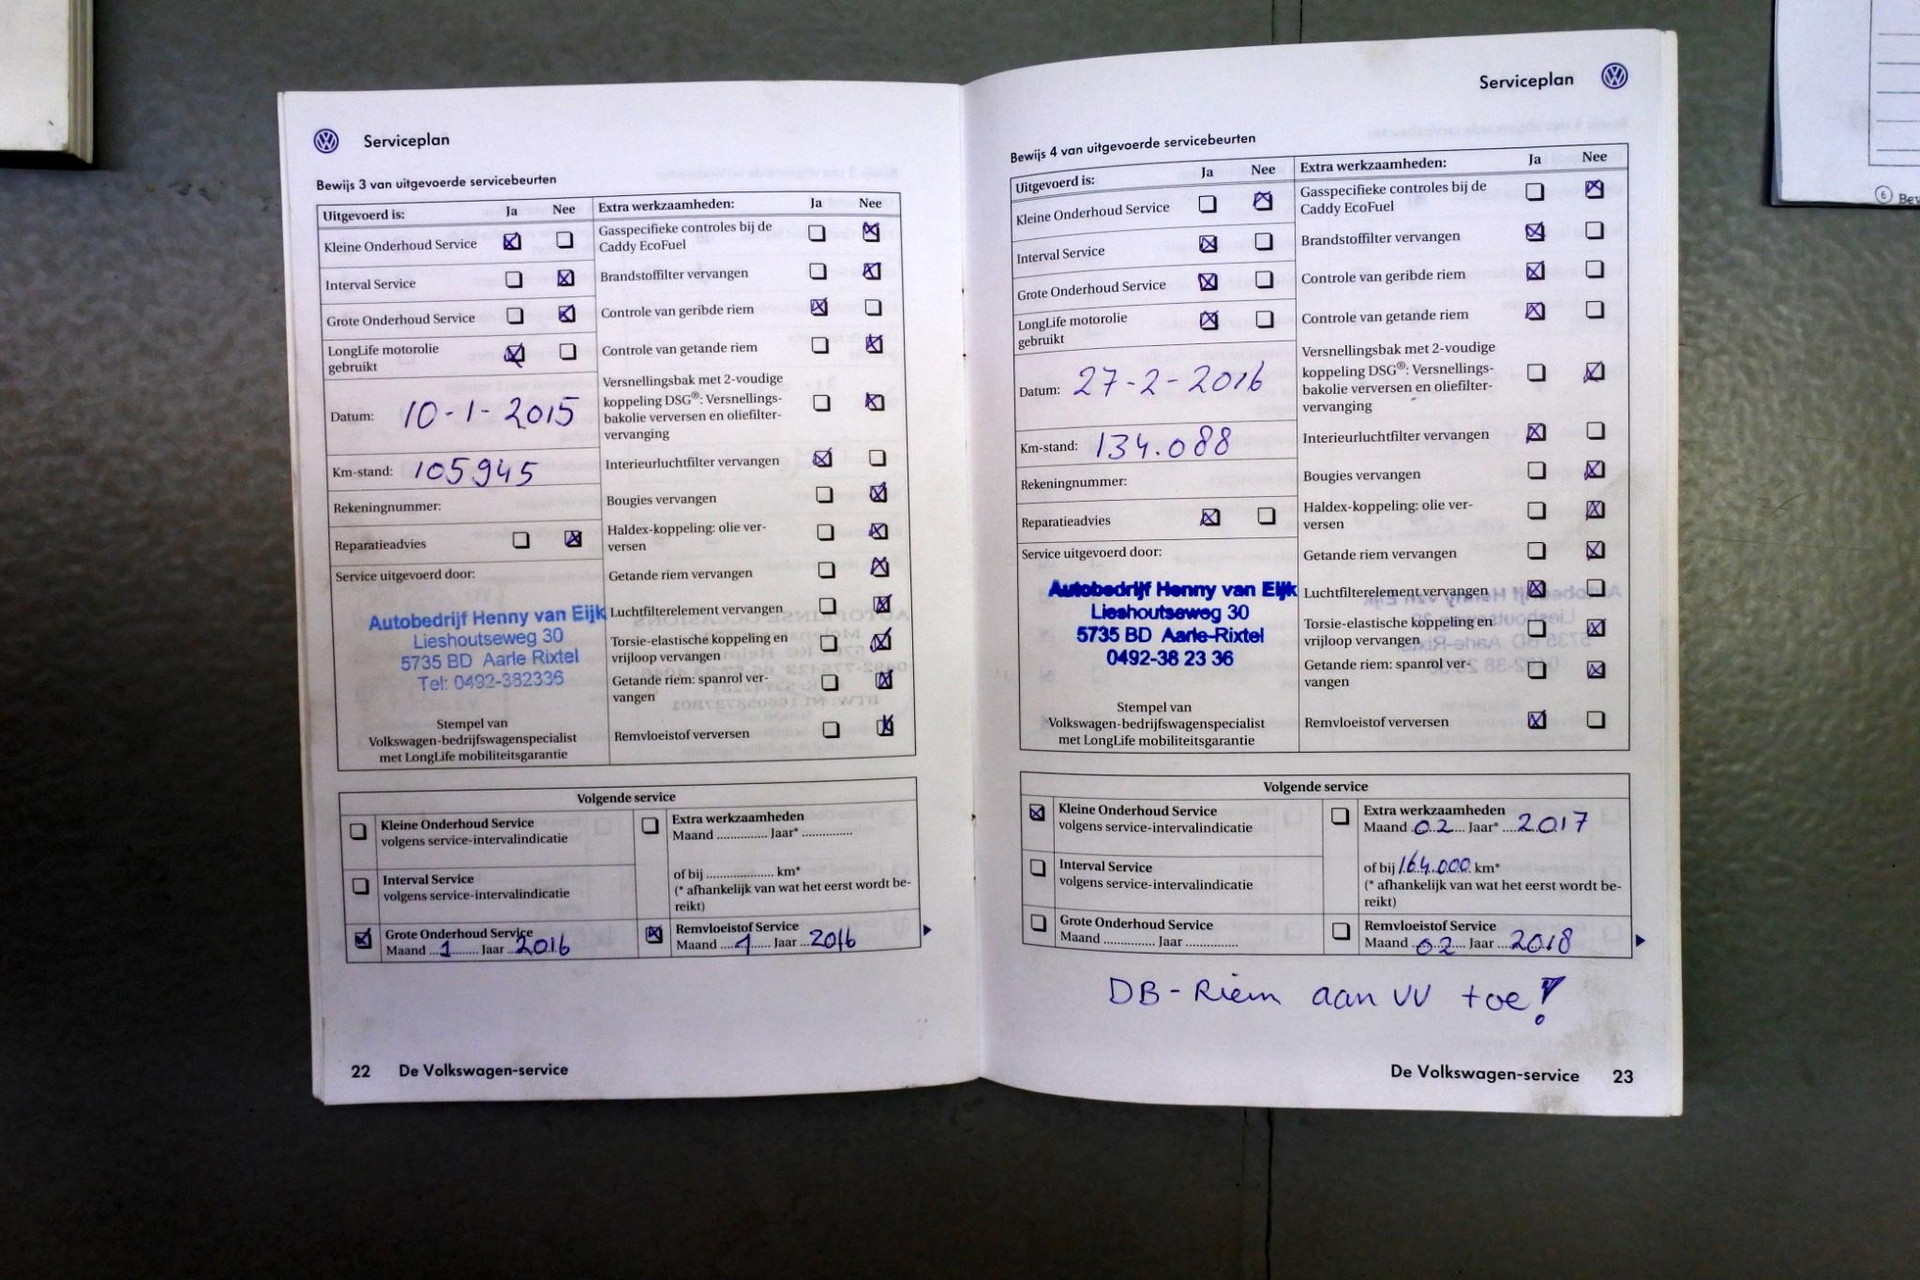 Serviceplan
Bewijs 3 van uitgevoerde servicebeurten
Uitgevoerd is: Ja Nee
Kleine Onderhoud Service
Interval Service
Grote Onderhoud Service
LongLife motorolie
gebruikt
Datum: 10-1-2015
Km-stand: 105945
Rekeningnummer:
Reparatieadvies
Service uitgevoerd door:
Autobedrijf Henny van Eijk
Lieshoutseweg 30
5735 BD Aarle Rixtel
Tel: 0492-382336
Stempel van
Volkswagen-bedrijfswagenspecialist
met LongLife mobiliteitsgarantie
Extra werkzaamheden: Ja Nee
Gasspecifieke controles bij de
Caddy EcoFuel
Brandstoffilter vervangen
Controle van geribde riem
Controle van getande riem
Versnellingsbak met 2-voudige
koppeling DSG®: Versnellings-
bakolie verversen en oliefilter-
vervanging
Interieurluchtfilter vervangen
Bougies vervangen
Haldex-koppeling: olie ver-
versen
Getande riem vervangen
Luchtfilterelement vervangen
Torsie-elastische koppeling en
vrijloop vervangen
Getande riem: spanrol ver-
vangen
Remvloeistof verversen
Volgende service
Kleine Onderhoud Service
volgens service-intervalindicatie
Interval Service
volgens service-intervalindicatie
Grote Onderhoud Service
Maand ...1......... Jaar ...2016
Extra werkzaamheden
Maand .............. Jaar* ..............
of bij ................... km*
(* afhankelijk van wat het eerst wordt be-
reikt)
Remvloeistof Service
Maand ....1...... Jaar ...2016
22 De Volkswagen-service
Serviceplan
Bewijs 4 van uitgevoerde servicebeurten
Uitgevoerd is: Ja Nee
Kleine Onderhoud Service
Interval Service
Grote Onderhoud Service
LongLife motorolie
gebruikt
Datum: 27-2-2016
Km-stand: 134.088
Rekeningnummer:
Reparatieadvies
Service uitgevoerd door:
Autobedrijf Henny van Eijk
Lieshoutseweg 30
5735 BD Aarle-Rixtel
0492-38 23 36
Stempel van
Volkswagen-bedrijfswagenspecialist
met LongLife mobiliteitsgarantie
Extra werkzaamheden: Ja Nee
Gasspecifieke controles bij de
Caddy EcoFuel
Brandstoffilter vervangen
Controle van geribde riem
Controle van getande riem
Versnellingsbak met 2-voudige
koppeling DSG®: Versnellings-
bakolie verversen en oliefilter-
vervanging
Interieurluchtfilter vervangen
Bougies vervangen
Haldex-koppeling: olie ver-
versen
Getande riem vervangen
Luchtfilterelement vervangen
Torsie-elastische koppeling en
vrijloop vervangen
Getande riem: spanrol ver-
vangen
Remvloeistof verversen
Volgende service
Kleine Onderhoud Service
volgens service-intervalindicatie
Interval Service
volgens service-intervalindicatie
Grote Onderhoud Service
Maand .............. Jaar ..............
Extra werkzaamheden
Maand ..02.... Jaar* ...2017
of bij 164.000 km*
(* afhankelijk van wat het eerst wordt be-
reikt)
Remvloeistof Service
Maand ..02.... Jaar ...2018
DB-Riem aan VV toe!
De Volkswagen-service 23